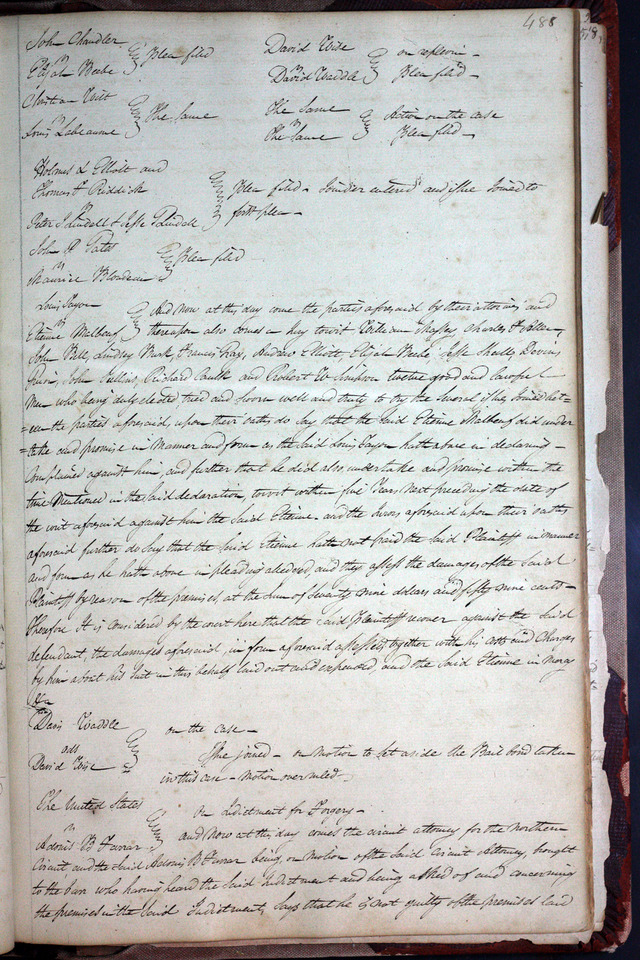 488
John Chandler
vs
Elijah Beebe
Plea filed
David Wise
vs
David Waddle
on replevin -
Plea filed -
Christian Wilt
vs
Louis Labeaume
The Same
The Same
vs
The Same
Action on the case
Plea filed -
Holmes & Elliott and
Thomas F Riddick
vs
Peter Lindell & Jesse G Lindell
Plea filed - Joinder entered and issue Joined to
forth plea -
John R Gates
vs
Maurice Blondeau
Plea filed
Louis
vs
Etienne
And Now at this day come the parties aforesaid by their attornies and
thereupon also comes a Jury towit William Charles
John Ball, Lindley Francis Ray, Andrew Elliott Elijah Beebe, Jesse
John Richard Caulk and Robert W Simpson twelve good and lawful
Men who being duly elected, tried and Sworn well and truly to try the Several issues Joined bet=
=ween the parties aforesaid, upon their oaths do Say that the Said Etienne did under
=take and promise in Manner and form as the Said Louis hath above in declaring
Complained against him and further that he did also undertake and promise within the
time Mentioned in the Said declaration, towit within five Years Next preceding the date of
the writ aforesaid against him the Said Etienne - and the Jurors aforesaid upon their oaths
aforesaid further do Say that the Said Etienne hath Not paid the Said Plaintiff in manner
and form as he hath above in pleading alledged, and they assess the damages of the Said
Plaintiff by reason of the premises at the Sum of Seventy Nine dollars and fifty nine cents -
Therefore It is considered by the court here that the Said Plaintiff recover against the Said
defendant, the damages aforesaid, in form aforesaid assessed, together with his costs and Charges
by him about his Suit in this behalf laid out and expended, and the Said Etienne in Mercy
&c
Waddle
ads
David Wise
on the case -
Issue joined - on Motion to Set aside the Bail bond taken
in this case - Motion overruled -
The United States
vs
Adonis B Farrar
On Indictment for Forgery -
and Now at this day comes the circuit attorney for the Northern
Circuit and the Said Adonis B Farrar being, on Motion of the Said Circuit Attorney, brought
to the Barr who having heard the Said Indictment and being asked of and concerning
the premises in the Said Indictment, Says that he is Not guilty of the premises laid